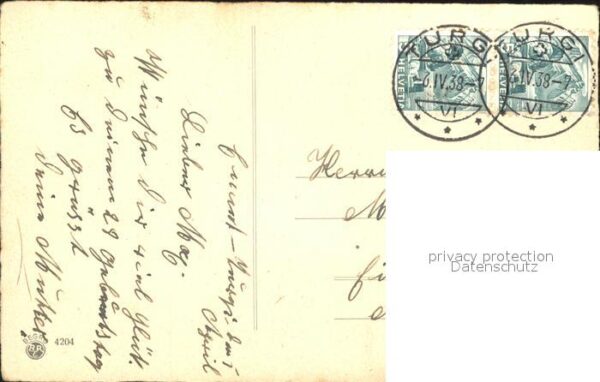 TURGI
-6.IV.38-7
VI
HELVETIA
TURGI
-6.IV.38-7
VI
HELVETIA
April
Lieber Max.
Wünsche Dir viel Glück
zu Deinem 29 Geburtstag
Es grüsst
Deine Mutter
Herrn
M
privacy protection
Datenschutz
4204